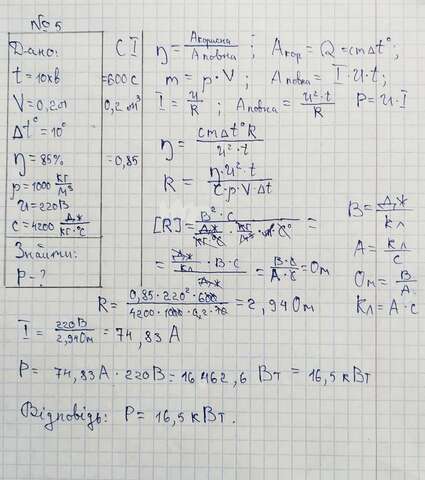 № 5
Дано:
СІ
t = 10хв
= 600 с
V = 0,2 м³
0,2 м³
Δt° = 10°
η = 85%
= 0,85
ρ = 1000 кг/м³
u = 220 В
c = 4200 Дж/кг·°С
Знайти:
P - ?
η = Aкорисна/Aповна ; Aкор = Q = cmΔt° ;
m = ρ · V ; Aповна = I · U · t ;
I = U/R ; Aповна = U²·t/R P = U · I
η = cmΔt°R/U²·t
R = η·U²·t/c·ρ·V·Δt
[R] = В²·с/Дж/кг·°С · кг/м³ · м³ · С° =
= Дж/Кл · В · с/Дж = В·с/А·с = Ом
В = Дж/Кл
А = Кл/с
Ом = В/А
Кл = А · с
R = 0,85 · 220² · 600/4200 · 1000 · 0,2 · 10 = 2,94 Ом
I = 220В/2,94Ом = 74,83 А
P = 74,83А · 220В = 16462,6 Вт = 16,5 кВт
Відповідь: P = 16,5 кВт.